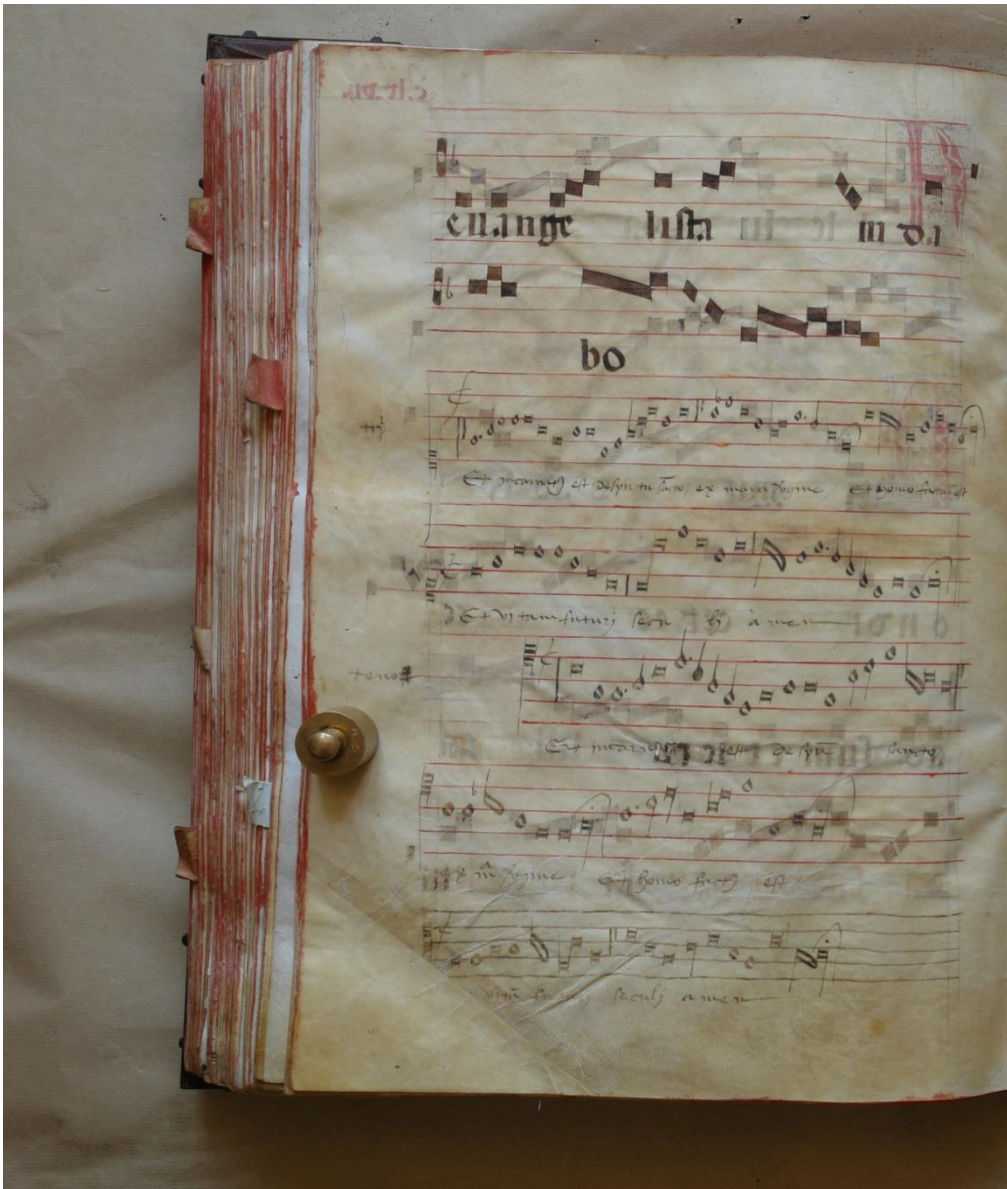 euange lista in da
bo
Et incarnat9 est de spiritu sancto ex maria virgine Et homo factus est
Et vitam futurj seculi amen
tenor
Et incarnat9 est de spu sancto
ex virgine Et homo fact9 est
futurj seculj amen